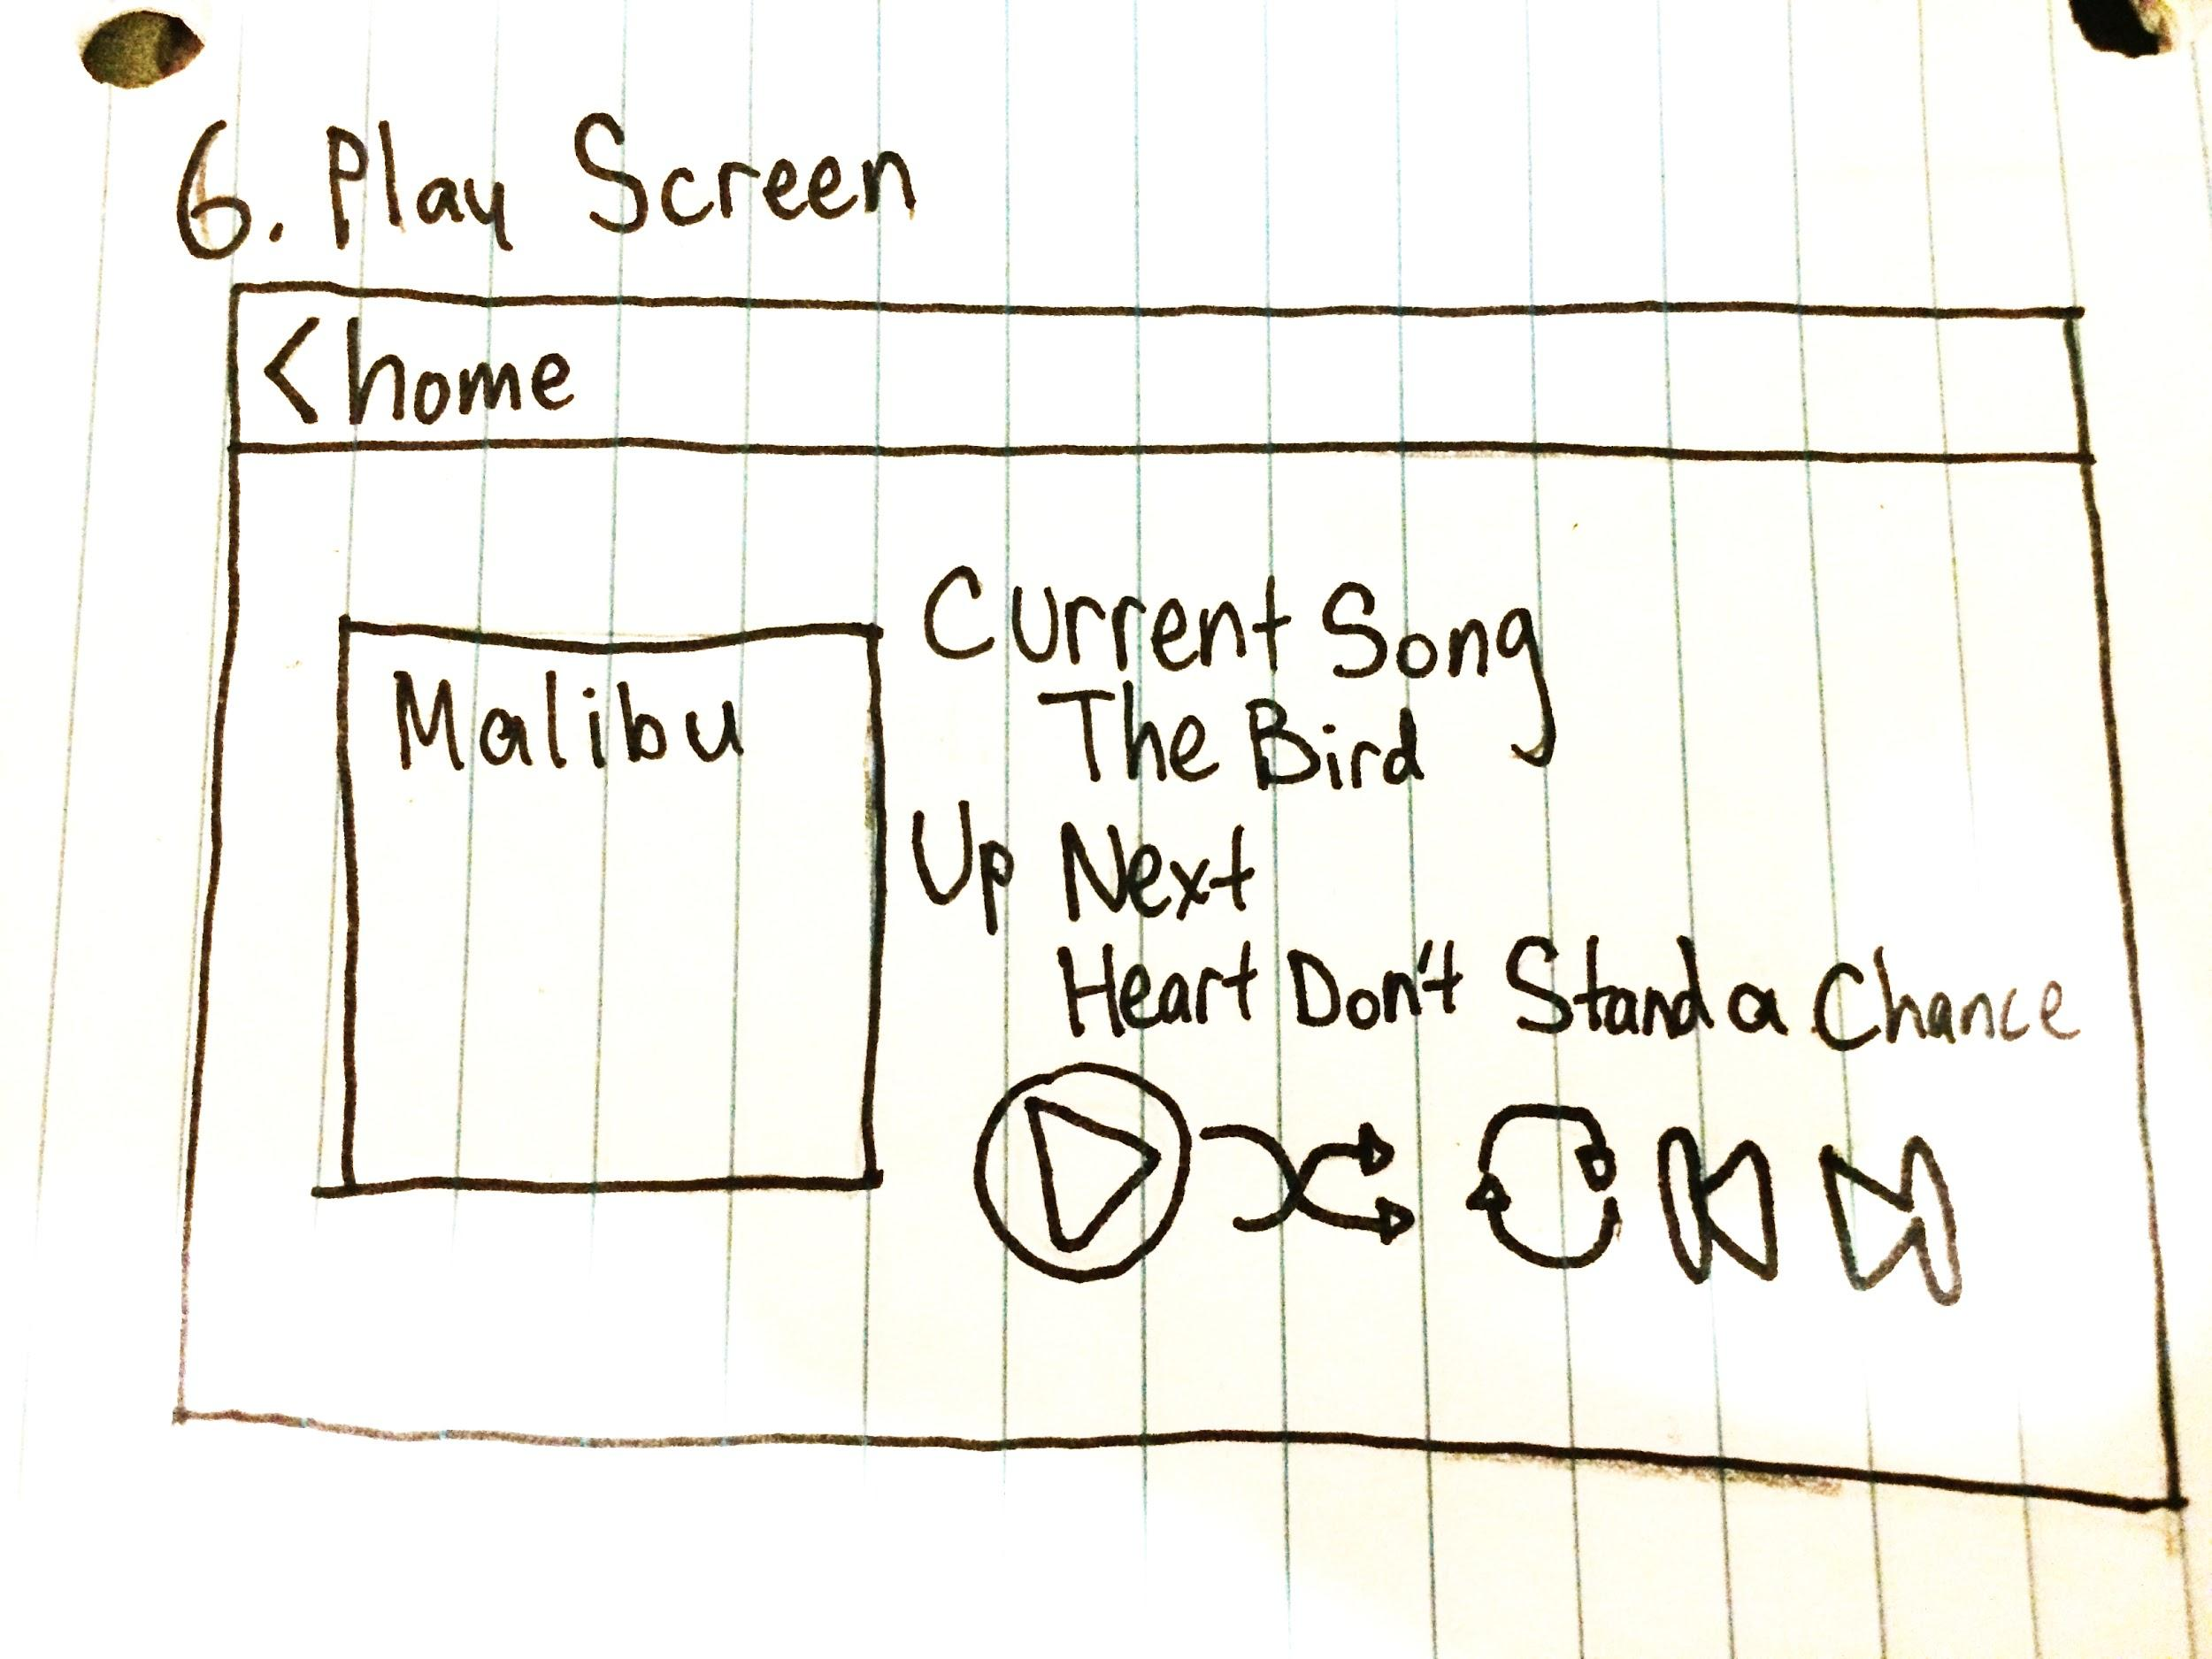 6. Play Screen
<home
Malibu
Current Song
The Bird
Up Next
Heart Don't Stand a Chance